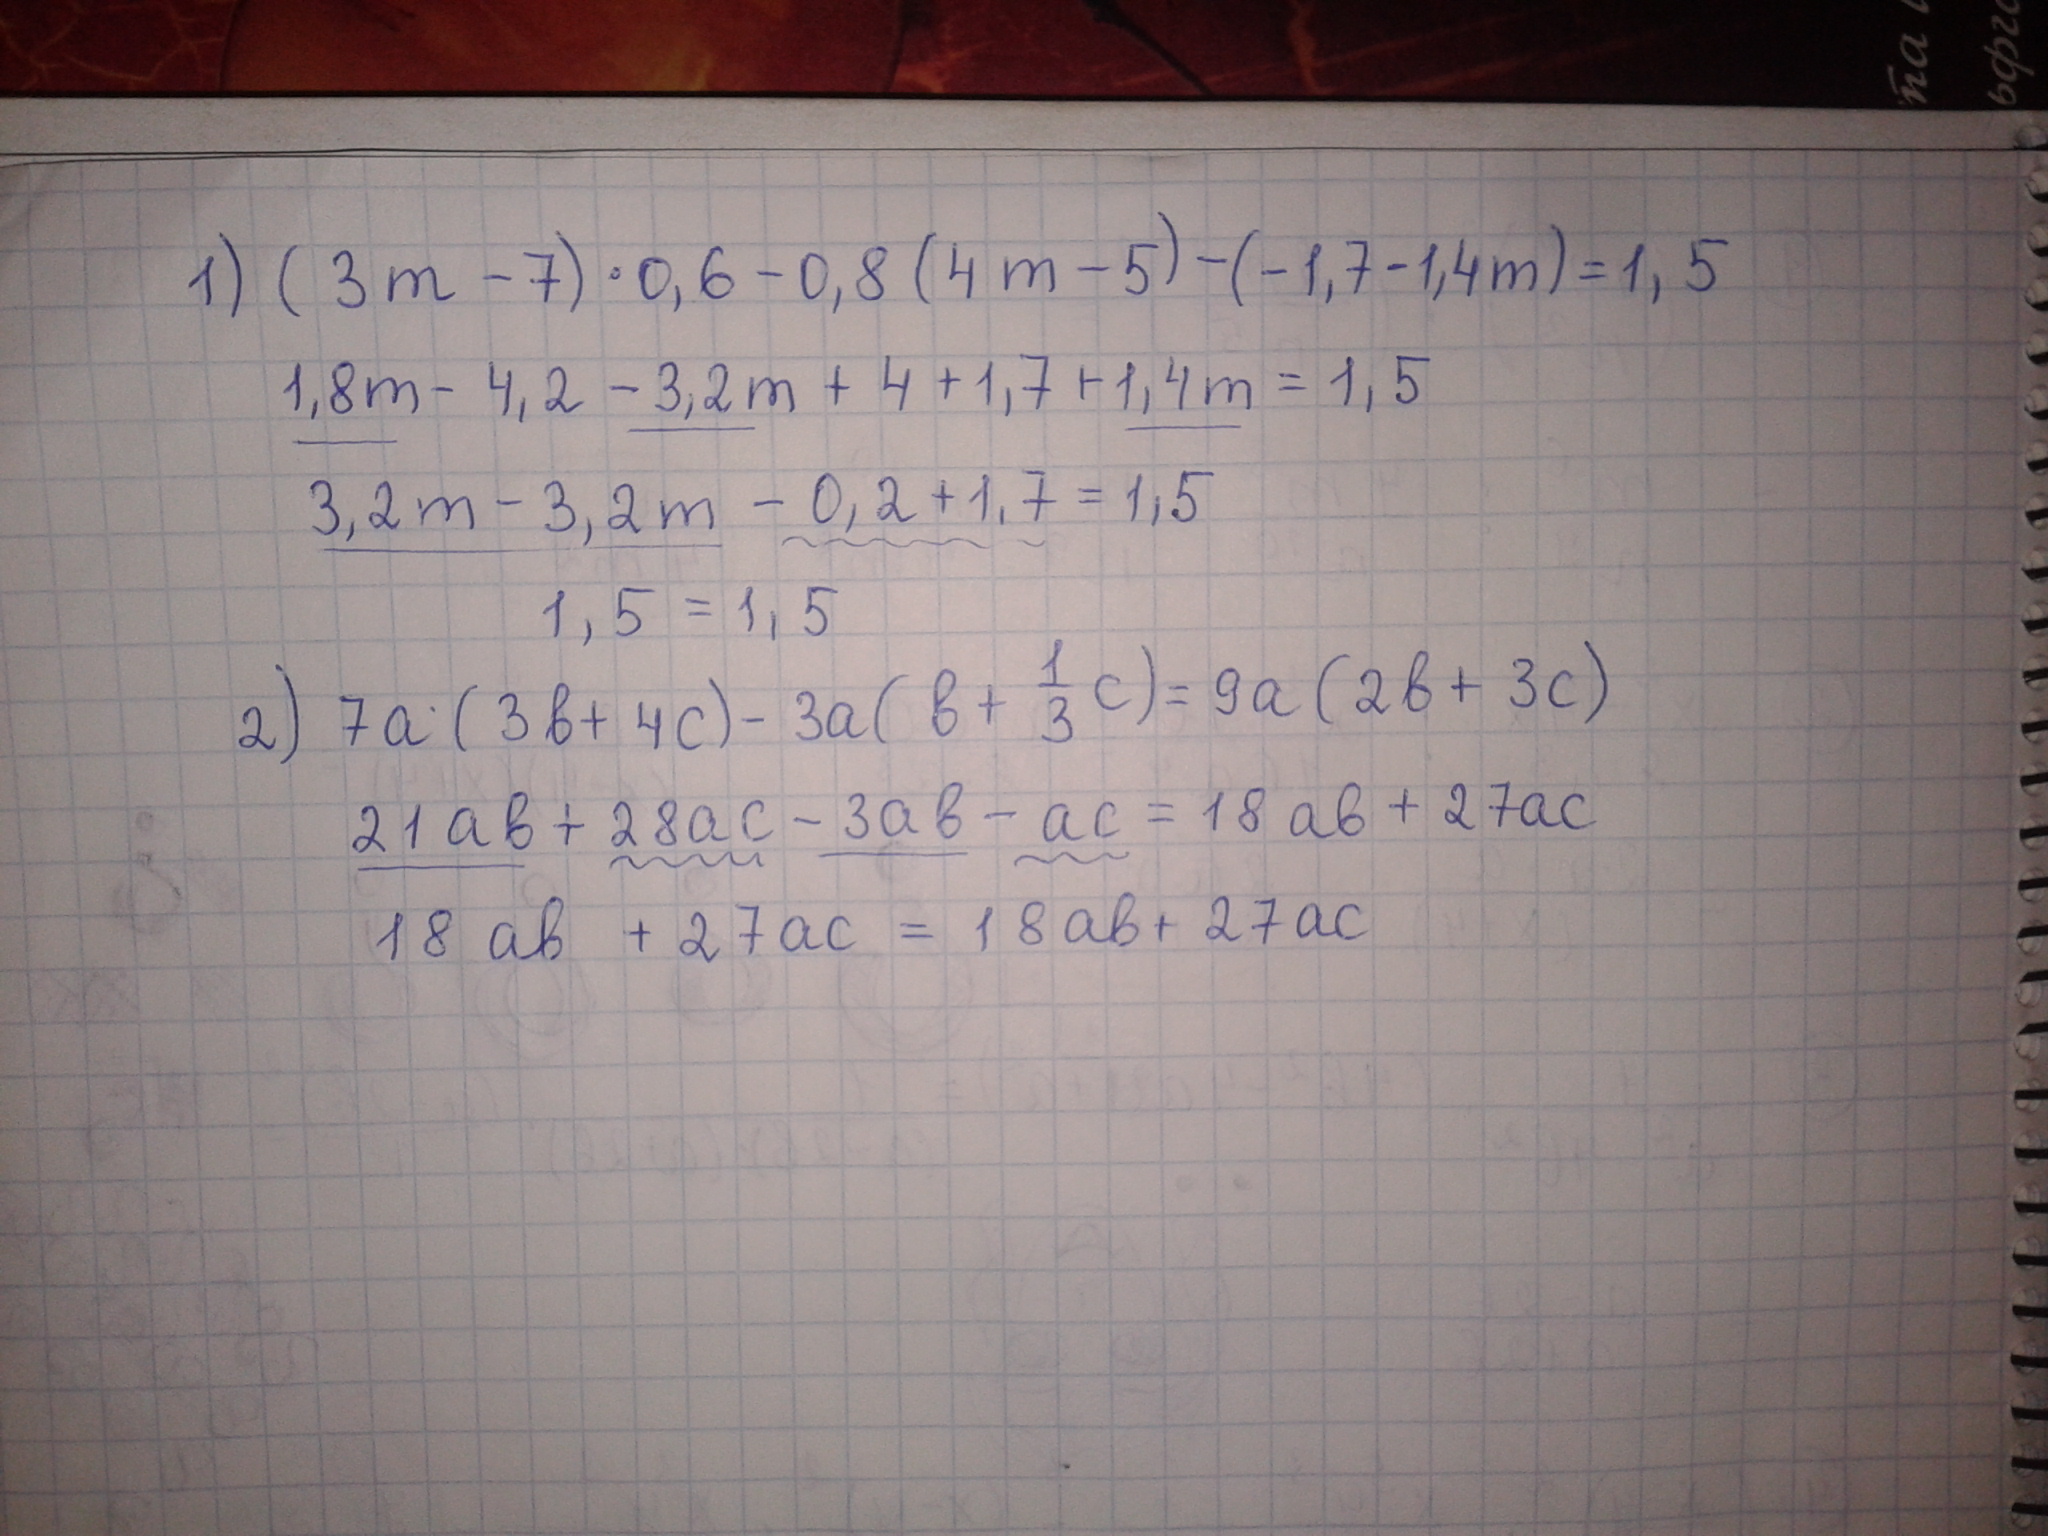 та
ьфго
1) (3m - 7) · 0,6 - 0,8 (4m - 5) - (-1,7 - 1,4m) = 1,5
1,8m - 4,2 - 3,2m + 4 + 1,7 + 1,4m = 1,5
3,2m - 3,2m - 0,2 + 1,7 = 1,5
1,5 = 1,5
2) 7a · (3в + 4c) - 3a (в + 1/3 c) = 9a (2в + 3c)
21aв + 28ac - 3aв - ac = 18aв + 27ac
18aв + 27ac = 18aв + 27ac